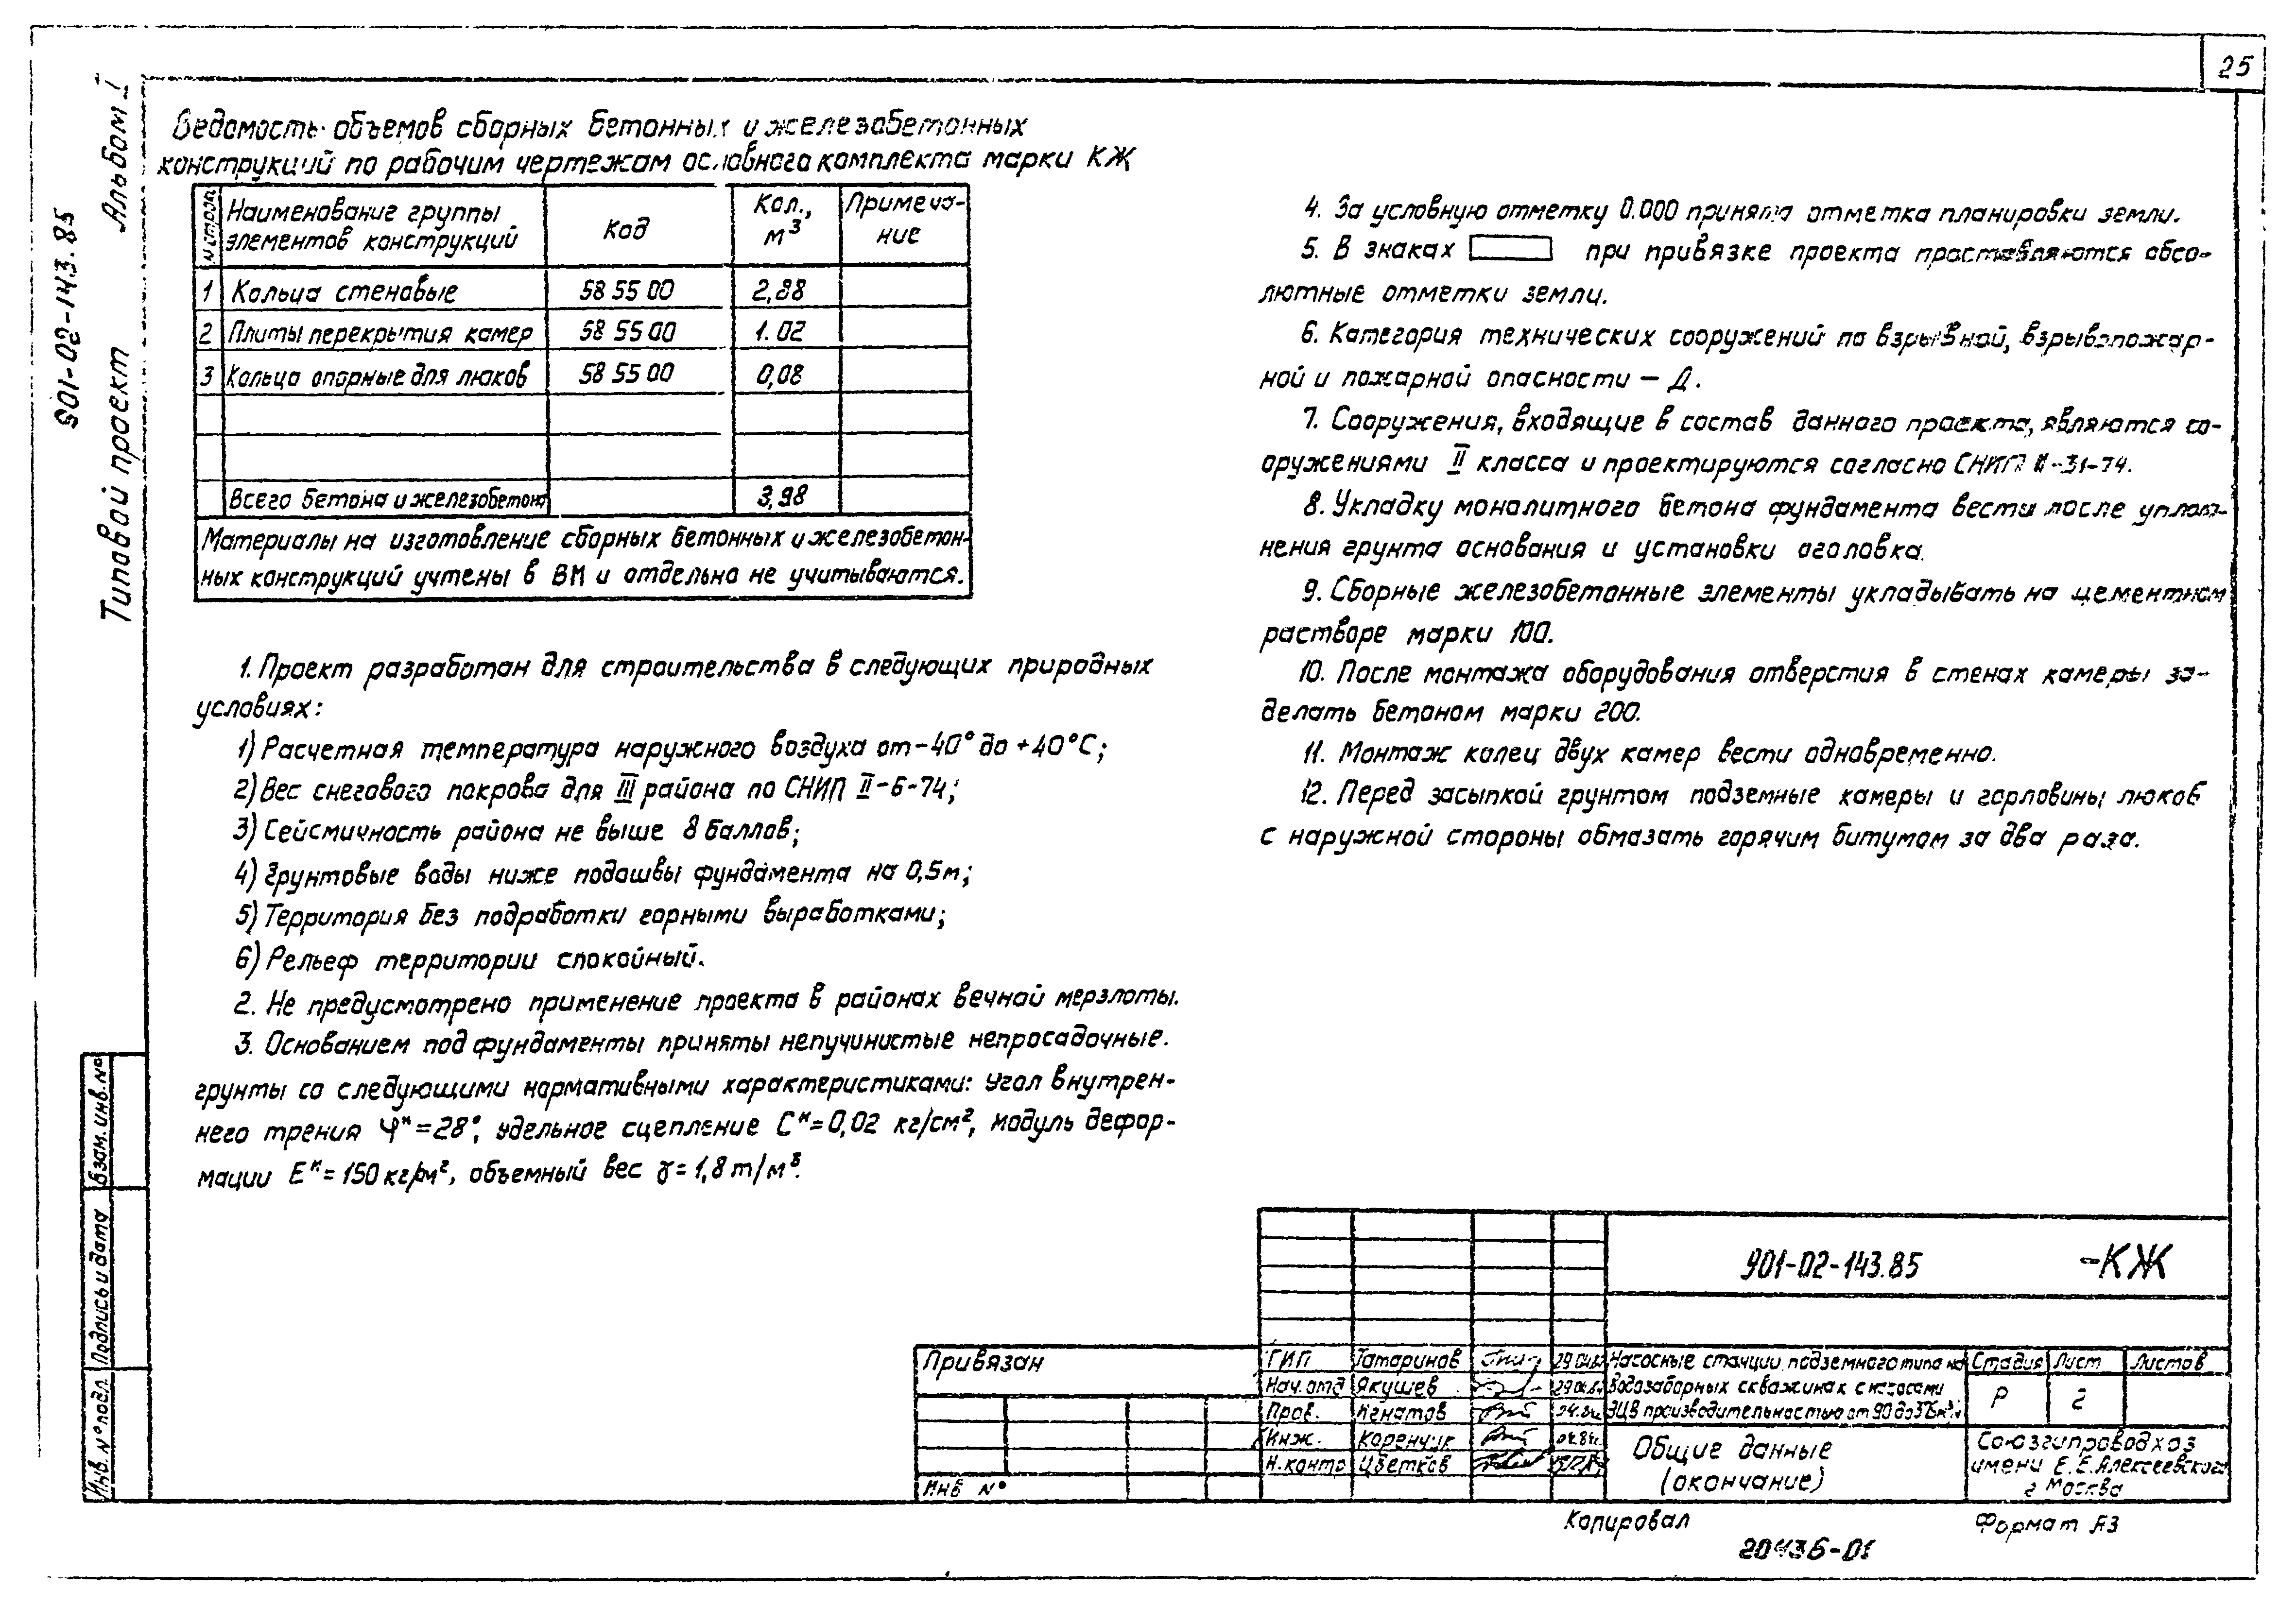 25
Альбом I
901-02-143.85
Типовой проект
Ведомость объемов сборных бетонных и железобетонных
конструкций по рабочим чертежам основного комплекта марки КЖ
N строк Наименование группы элементов конструкций Код Кол., м³ Примечание
1 Кольца стеновые 58 55 00 2,88
2 Плиты перекрытия камер 58 55 00 1.02
3 Кольца опорные для люков 58 55 00 0,08
Всего бетона и железобетона 3,98
Материалы на изготовление сборных бетонных и железобетон-
ных конструкций учтены в ВМ и отдельно не учитываются.
1. Проект разработан для строительства в следующих природных
условиях:
1) Расчетная температура наружного воздуха от -40° до +40°С;
2) Вес снегового покрова для III района по СНИП II-6-74;
3) Сейсмичность района не выше 8 баллов;
4) Грунтовые воды ниже подошвы фундамента на 0,5м;
5) Территория без подработки горными выработками;
6) Рельеф территории спокойный.
2. Не предусмотрено применение проекта в районах вечной мерзлоты.
3. Основанием под фундаменты приняты непучинистые непросадочные.
грунты со следующими нормативными характеристиками: угол внутрен-
него трения φᴴ=28°, удельное сцепление Cᴴ=0,02 кг/см², модуль дефор-
мации Eᴴ=150 кг/см², объемный вес γ=1,8 т/м³.
4. За условную отметку 0.000 принята отметка планировки земли.
5. В знаках при привязке проекта проставляются абсо-
лютные отметки земли.
6. Категория технических сооружений по взрывной, взрывопожар-
ной и пожарной опасности – Д.
7. Сооружения, входящие в состав данного проекта, являются со-
оружениями II класса и проектируются согласно СНИП II-31-74.
8. Укладку монолитного бетона фундамента вести после уплот-
нения грунта основания и установки оголовка.
9. Сборные железобетонные элементы укладывать на цементном
растворе марки 100.
10. После монтажа оборудования отверстия в стенах камеры за-
делать бетоном марки 200.
11. Монтаж колец двух камер вести одновременно.
12. Перед засыпкой грунтом подземные камеры и горловины люков
с наружной стороны обмазать горячим битумом за два раза.
Взам. инв. №
Подпись и дата
Инв. № подл.
901-02-143.85 -КЖ
Привязан
Инв №
ГИП Татаринов
Нач. отд Якушев
Пров. Игнатов
Инж. Коренчук
Н.контр Цветков
Насосные станции подземного типа на
водозаборных скважинах с насосами
ЭЦВ производительностью от 90 до 375 м³/ч
Стадия Лист Листов
Р 2
Общие данные
(окончание)
Союзгипроводхоз
имени Е.Е.Алексеевского
г Москва
Копировал
Формат А3
20436-01